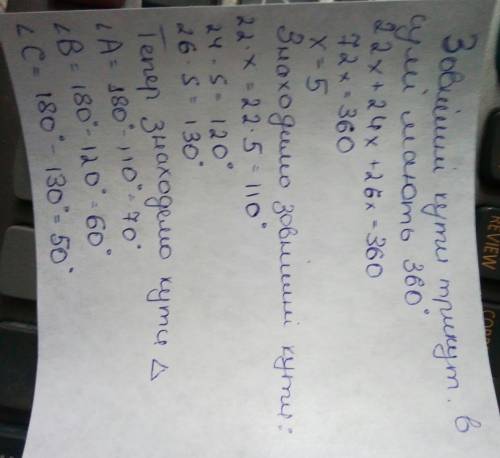 Зовнішні кути трикут. в
сумі мають 360°
22x + 24x + 26x = 360
72x = 360
x = 5
Знаходимо зовнішні кути:
22 · x = 22 · 5 = 110°
24 · 5 = 120°
26 · 5 = 130°
Тепер знаходемо кути △
∠A = 180° - 110° = 70°
∠B = 180° - 120° = 60°
∠C = 180° - 130° = 50°
REVIEW